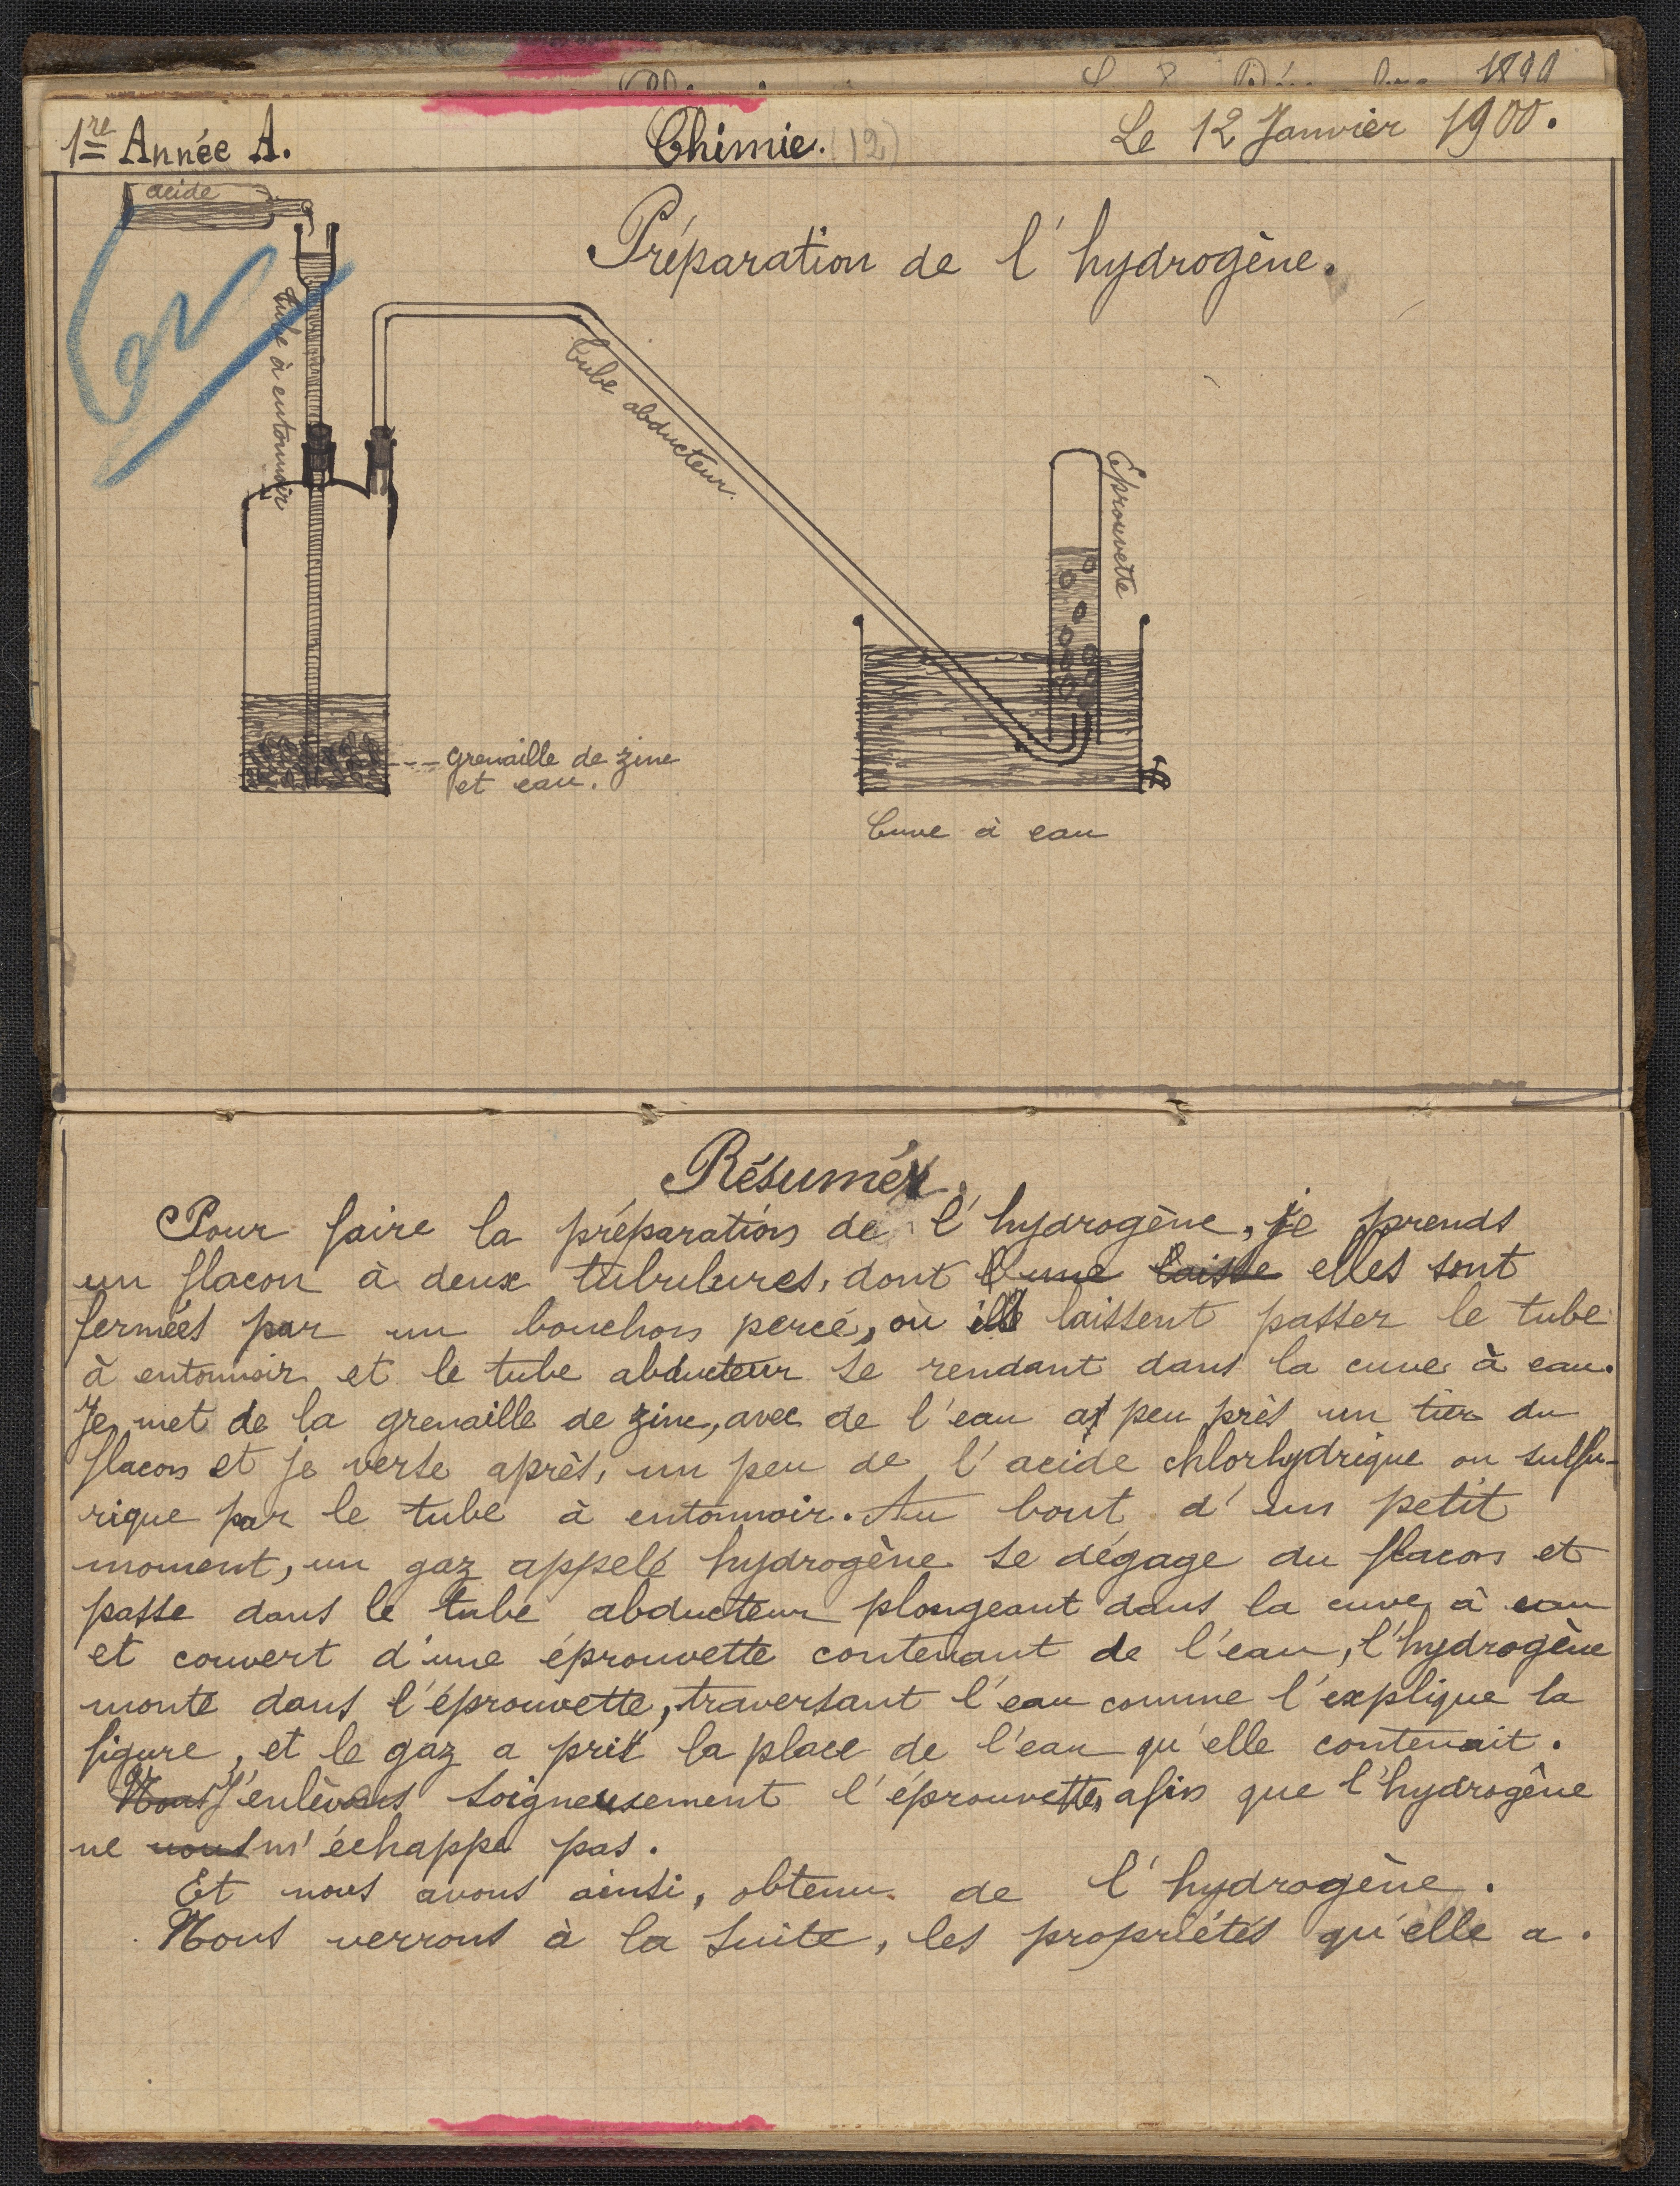 1899
1re Année A.
Chimie. (12)
Le 12 Janvier 1900.
acide
Préparation de l'hydrogène.
tube à entonnoir
tube abducteur.
Éprouvette
grenaille de zinc
et eau.
Cuve à eau
Résumé
Pour faire la préparation de l'hydrogène, je prends
un flacon à deux tubulures, dont l'une laisse elles sont
fermées par un bouchon percé, où ils laissent passer le tube
à entonnoir et le tube abducteur se rendant dans la cuve à eau.
Je met de la grenaille de zinc, avec de l'eau a peu près un tier du
flacon et je verse après, un peu de l'acide chlorhydrique ou sulfu-
rique par le tube à entonnoir. Au bout d'un petit
moment, un gaz appelé hydrogène se dégage du flacon et
passe dans le tube abducteur plongeant dans la cuve à eau
et couvert d'une éprouvette contenant de l'eau, l'hydrogène
monte dans l'éprouvette, traversant l'eau comme l'explique la
figure, et le gaz a pris la place de l'eau qu'elle contenait.
Nous J'enlèvons soigneusement l'éprouvette, afin que l'hydrogène
ne nous m'échappe pas.
Et nous avons ainsi, obtenu de l'hydrogène.
Nous verrons à la suite, les propriétés qu'elle a.